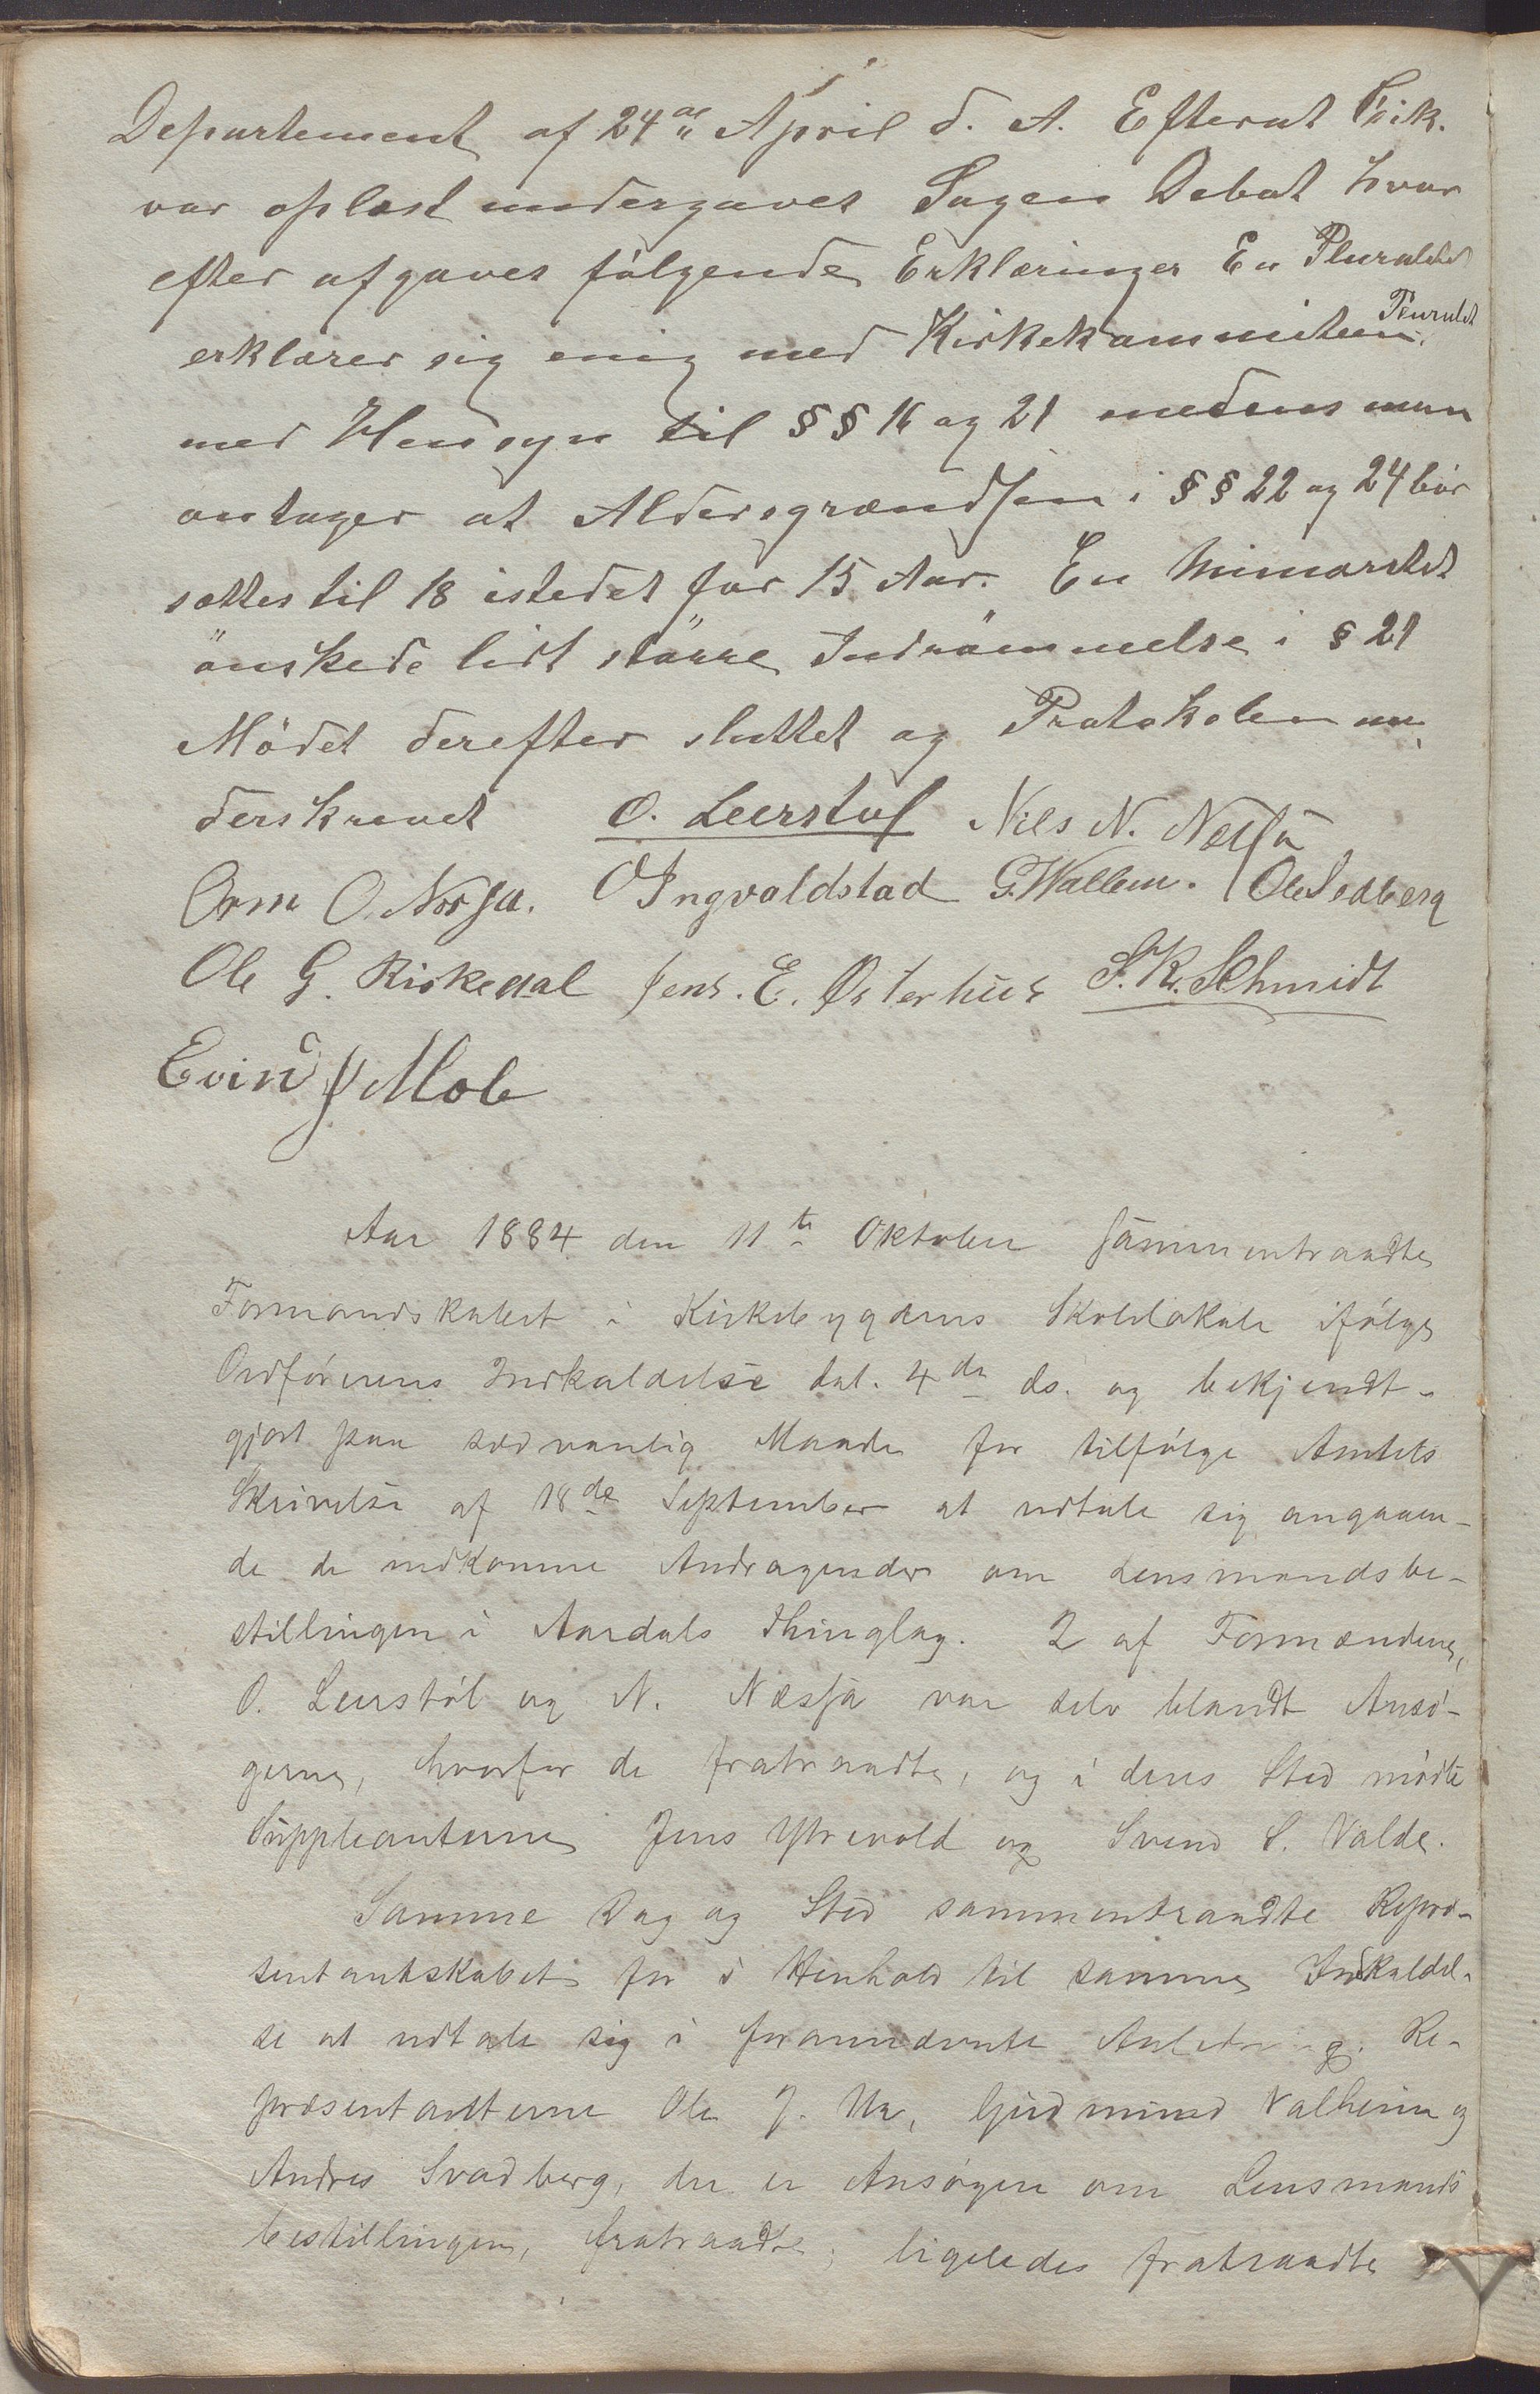 Departement af 24de April d. A. Efterat Skr.
var oplæst undergaves Sagen Debat hvor
efter afgaves følgende Erklæringer En Pluralitet
erklærer sig enig med Kirkekommiteens Pluralit
med Hensyn til §§ 16 og 21 medens man
antager at Aldersgrændsen i §§ 22 og 24 bör
sættes til 18 istedet for 15 Aar. En Minoritet
önskede lidt större Indrömmelse i § 21
Mödet derefter sluttet og Protokolen un,
derskrevet O. Leerstøl Nils N. Næssa
Orm O. Næssa. O Ingvaldstad G. Wallem. Ole Sedberg
Ole G. Riskedal Jens. E. Østerhus S. K. Schmidt
Eivind J Mæle
Aar 1884 den 11te Oktober sammentraadte
Formandskabet i Kirkebygdens Skolelokale ifølge
Ordførerens Indkaldelse dat. 4de ds. og bekjendt-
gjort paa sædvanlig Maade for tilfølge Amtets
Skrivelse af 18de September at udtale sig angaaen-
de de indkomne Andragender om Lensmandsbe-
stillingen i Aardals Thinglag. 2 af Formændene,
O. Leerstøl og N. Næssa var selv blandt Ansø-
gerne, hvorfor de fratraadte, og i deres Sted mødte
Suppleanterne Jens Ytrevold og Svend S. Valde.
Samme Dag og Sted sammentraadte Repræ-
sentantskabet for i Henhold til samme Indkaldel-
se at udtale sig i forannævnte Anledning. Re-
præsentanterne Ole J. Ur, Gudmund Valheim og
Andres Svadberg, der er Ansøgere om Lensmands
bestillingen, fratraadte; ligeledes fratraadte